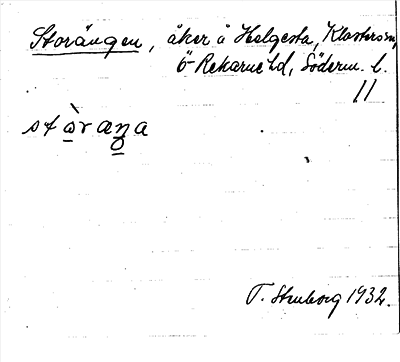 Storängen, åker å Helgesta, Klosters sn,
Ö-Rekarne hd, Söderm. l.
11
stòraŋa
T. Stenborg 1932.